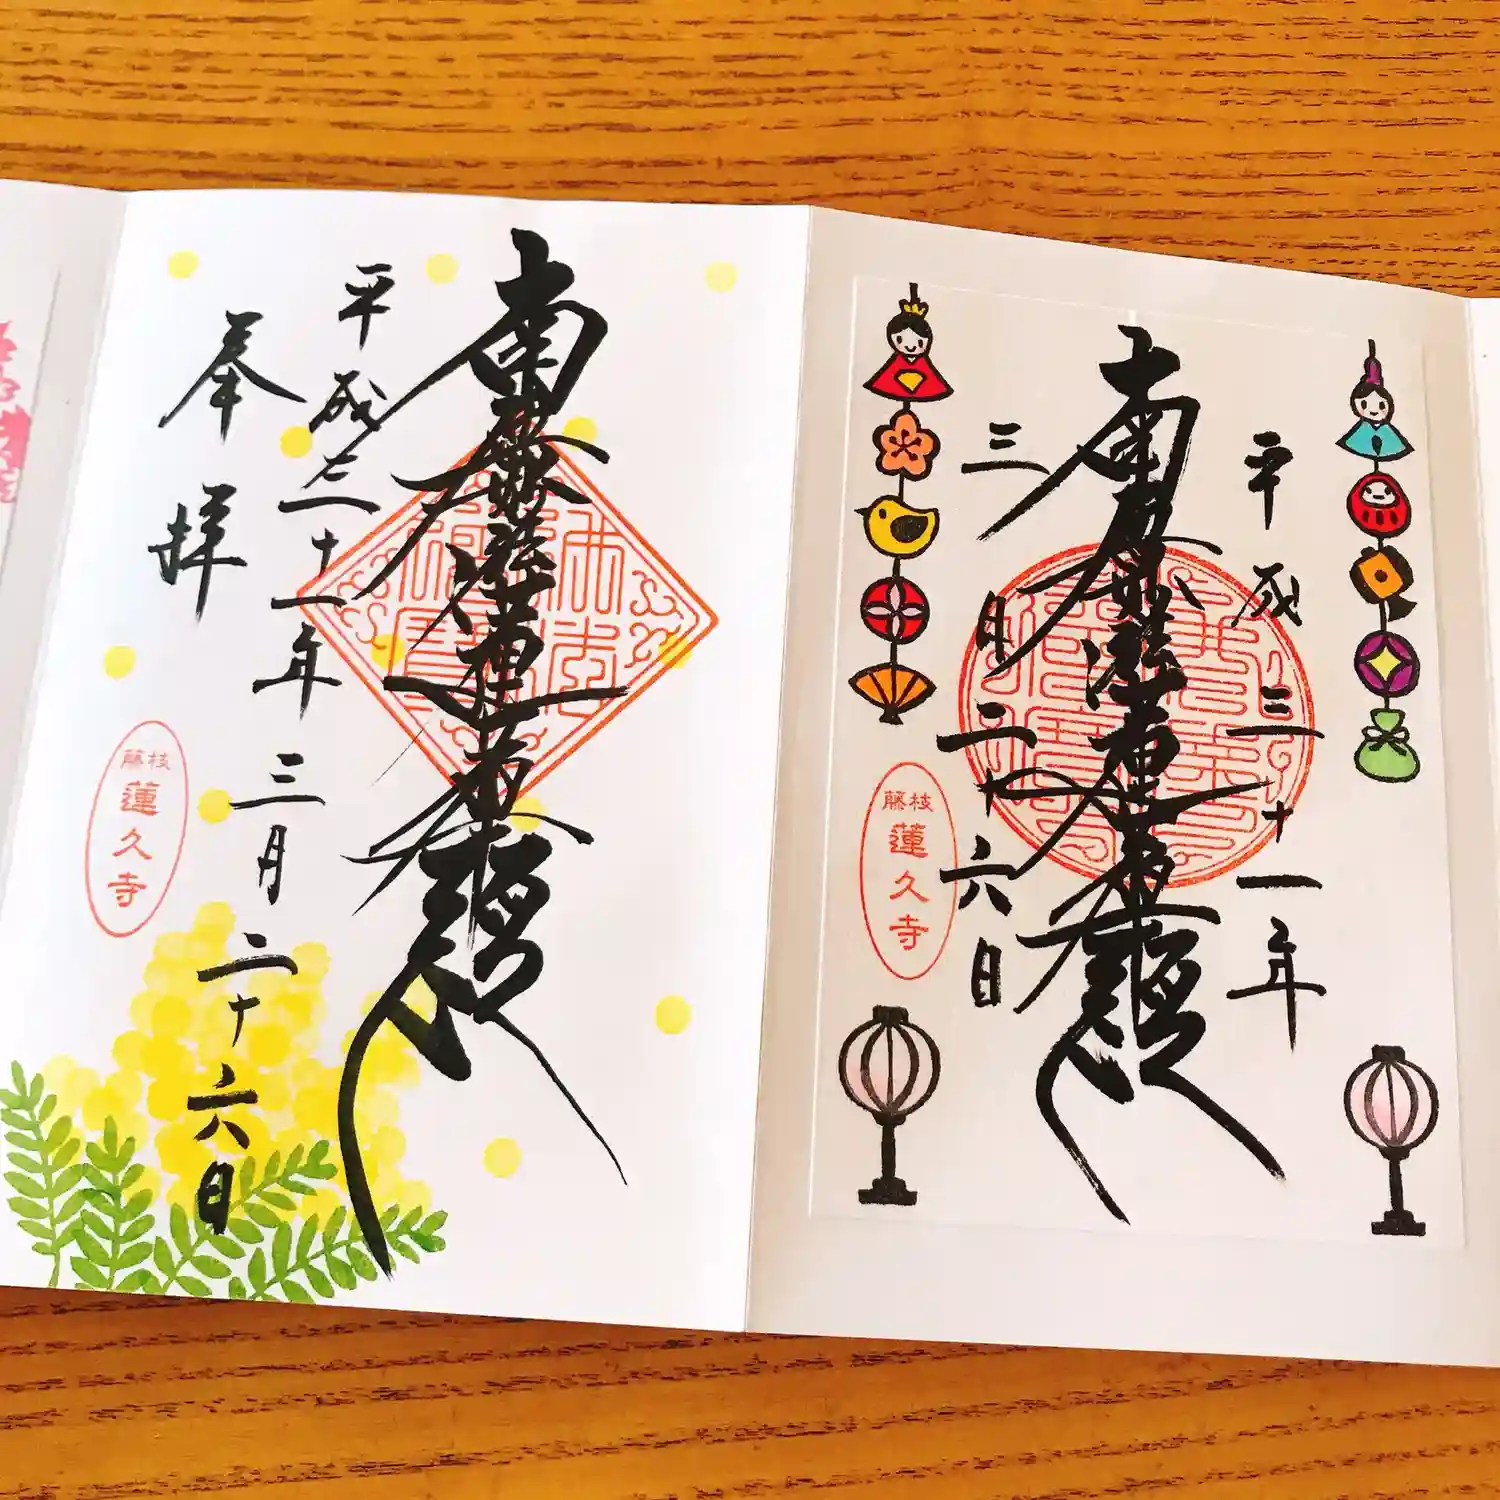 平成三十一年
南無妙法蓮華経
三月二十六日
藤枝
蓮久寺
南無妙法蓮華経
佛法僧寶
平成三十一年三月二十六日
奉拝
藤枝
蓮久寺